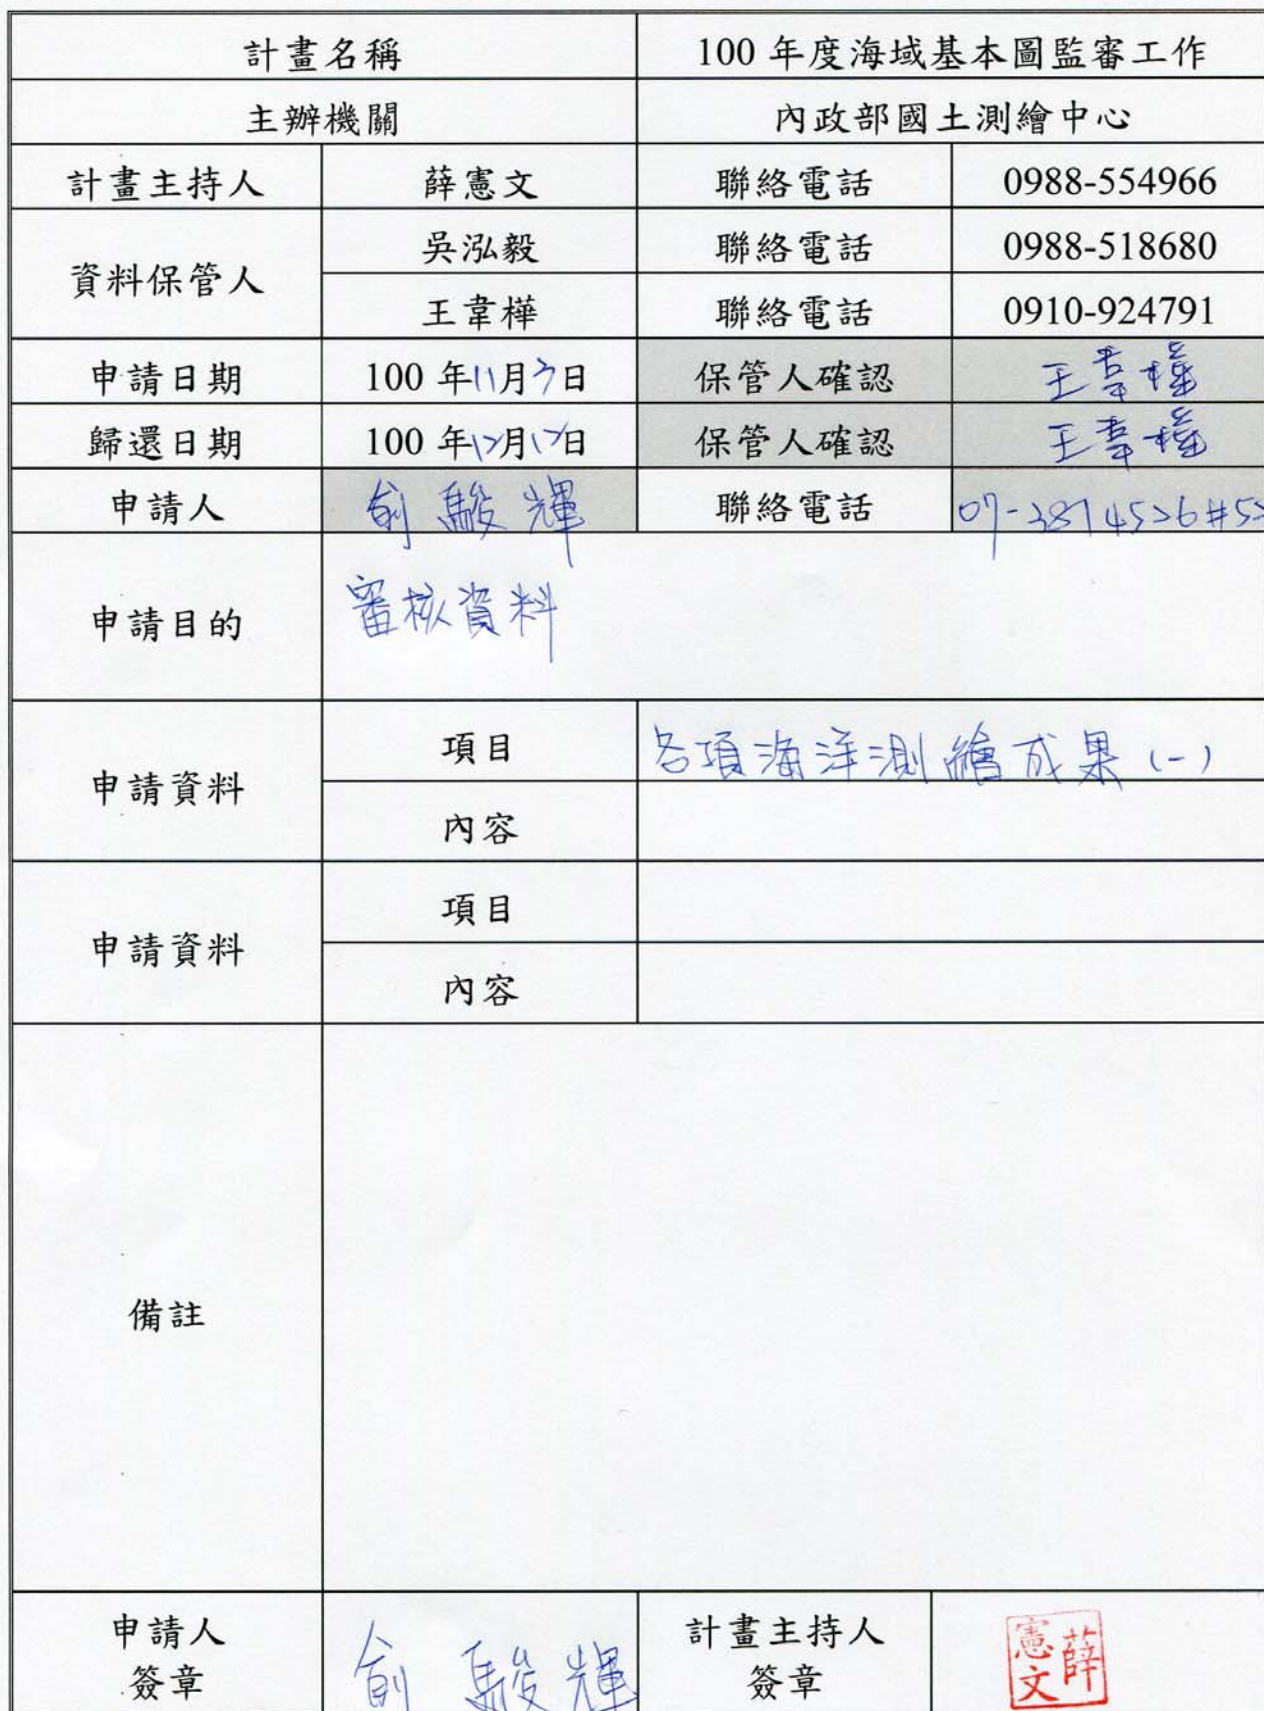 計畫名稱 100 年度海域基本圖監審工作
主辦機關 內政部國土測繪中心
計畫主持人 薛憲文 聯絡電話 0988-554966
資料保管人 吳泓毅 聯絡電話 0988-518680
王韋樺 聯絡電話 0910-924791
申請日期 100 年11月3日 保管人確認 王韋樺
歸還日期 100 年12月12日 保管人確認 王韋樺
申請人 俞駿輝 聯絡電話
申請目的 審核資料
申請資料 項目 各項海洋測繪成果(一)
內容
申請資料 項目
內容
備註
申請人 簽章 俞駿輝 計畫主持人 簽章 薛憲文